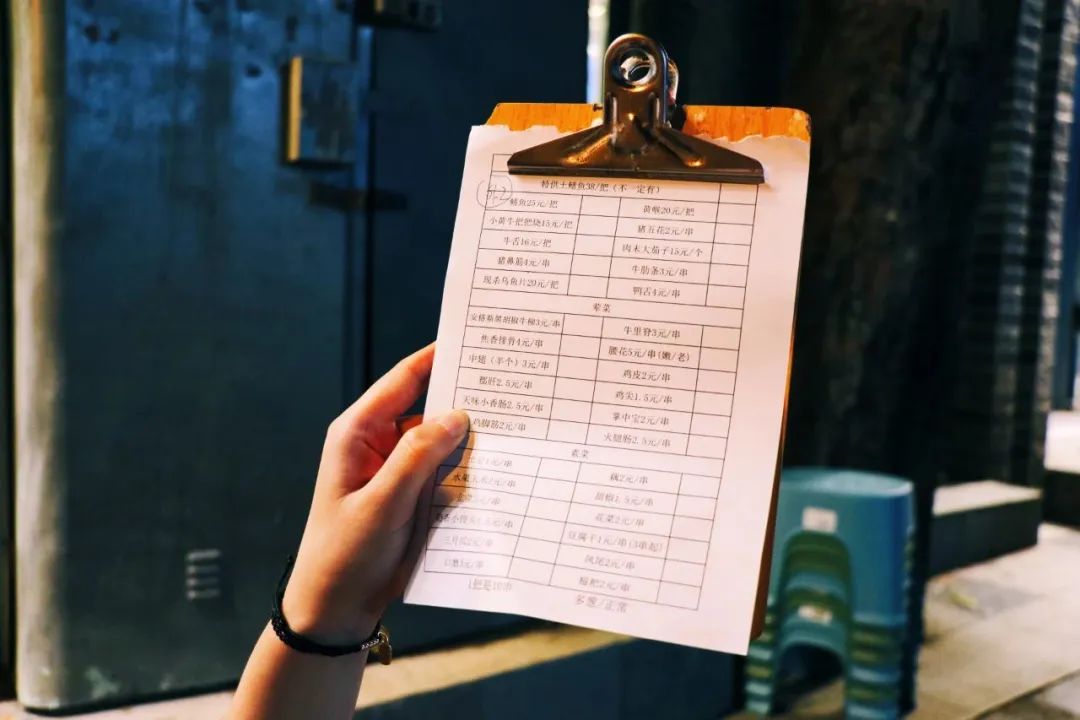 特供土鳝鱼38/把(不一定有)
鳝鱼25元/把 黄喉20元/把
小黄牛把把烧15元/把 猪五花2元/串
牛舌16元/把 肉末大茄子15元/个
猪鼻筋4元/串 牛肋条3元/串
现杀乌鱼片20元/把 鸭舌4元/串
荤菜
安格斯黑胡椒牛柳3元/串 牛里脊3元/串
焦香排骨4元/串 腰花5元/串(嫩/老)
中翅(半个)3元/串 鸡皮2元/串
郡肝2.5元/串 鸡尖1.5元/串
天味小香肠2.5元/串 掌中宝2元/串
鸡脚筋2元/串 火腿肠2.5元/串
素菜
元/串 藕2元/串
水果玉米2元/串 甜椒1.5元/串
元/串 花菜2元/串
小馒头1.5元/串 豆腐干1元/串(3串起)
三月瓜2元/串 凤尾2元/串
口蘑3元/串 糍粑2元/串
1把是10串 多辣/正常